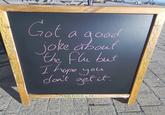 Got a good
joke about
the Flu but
I hope you
don't get it.